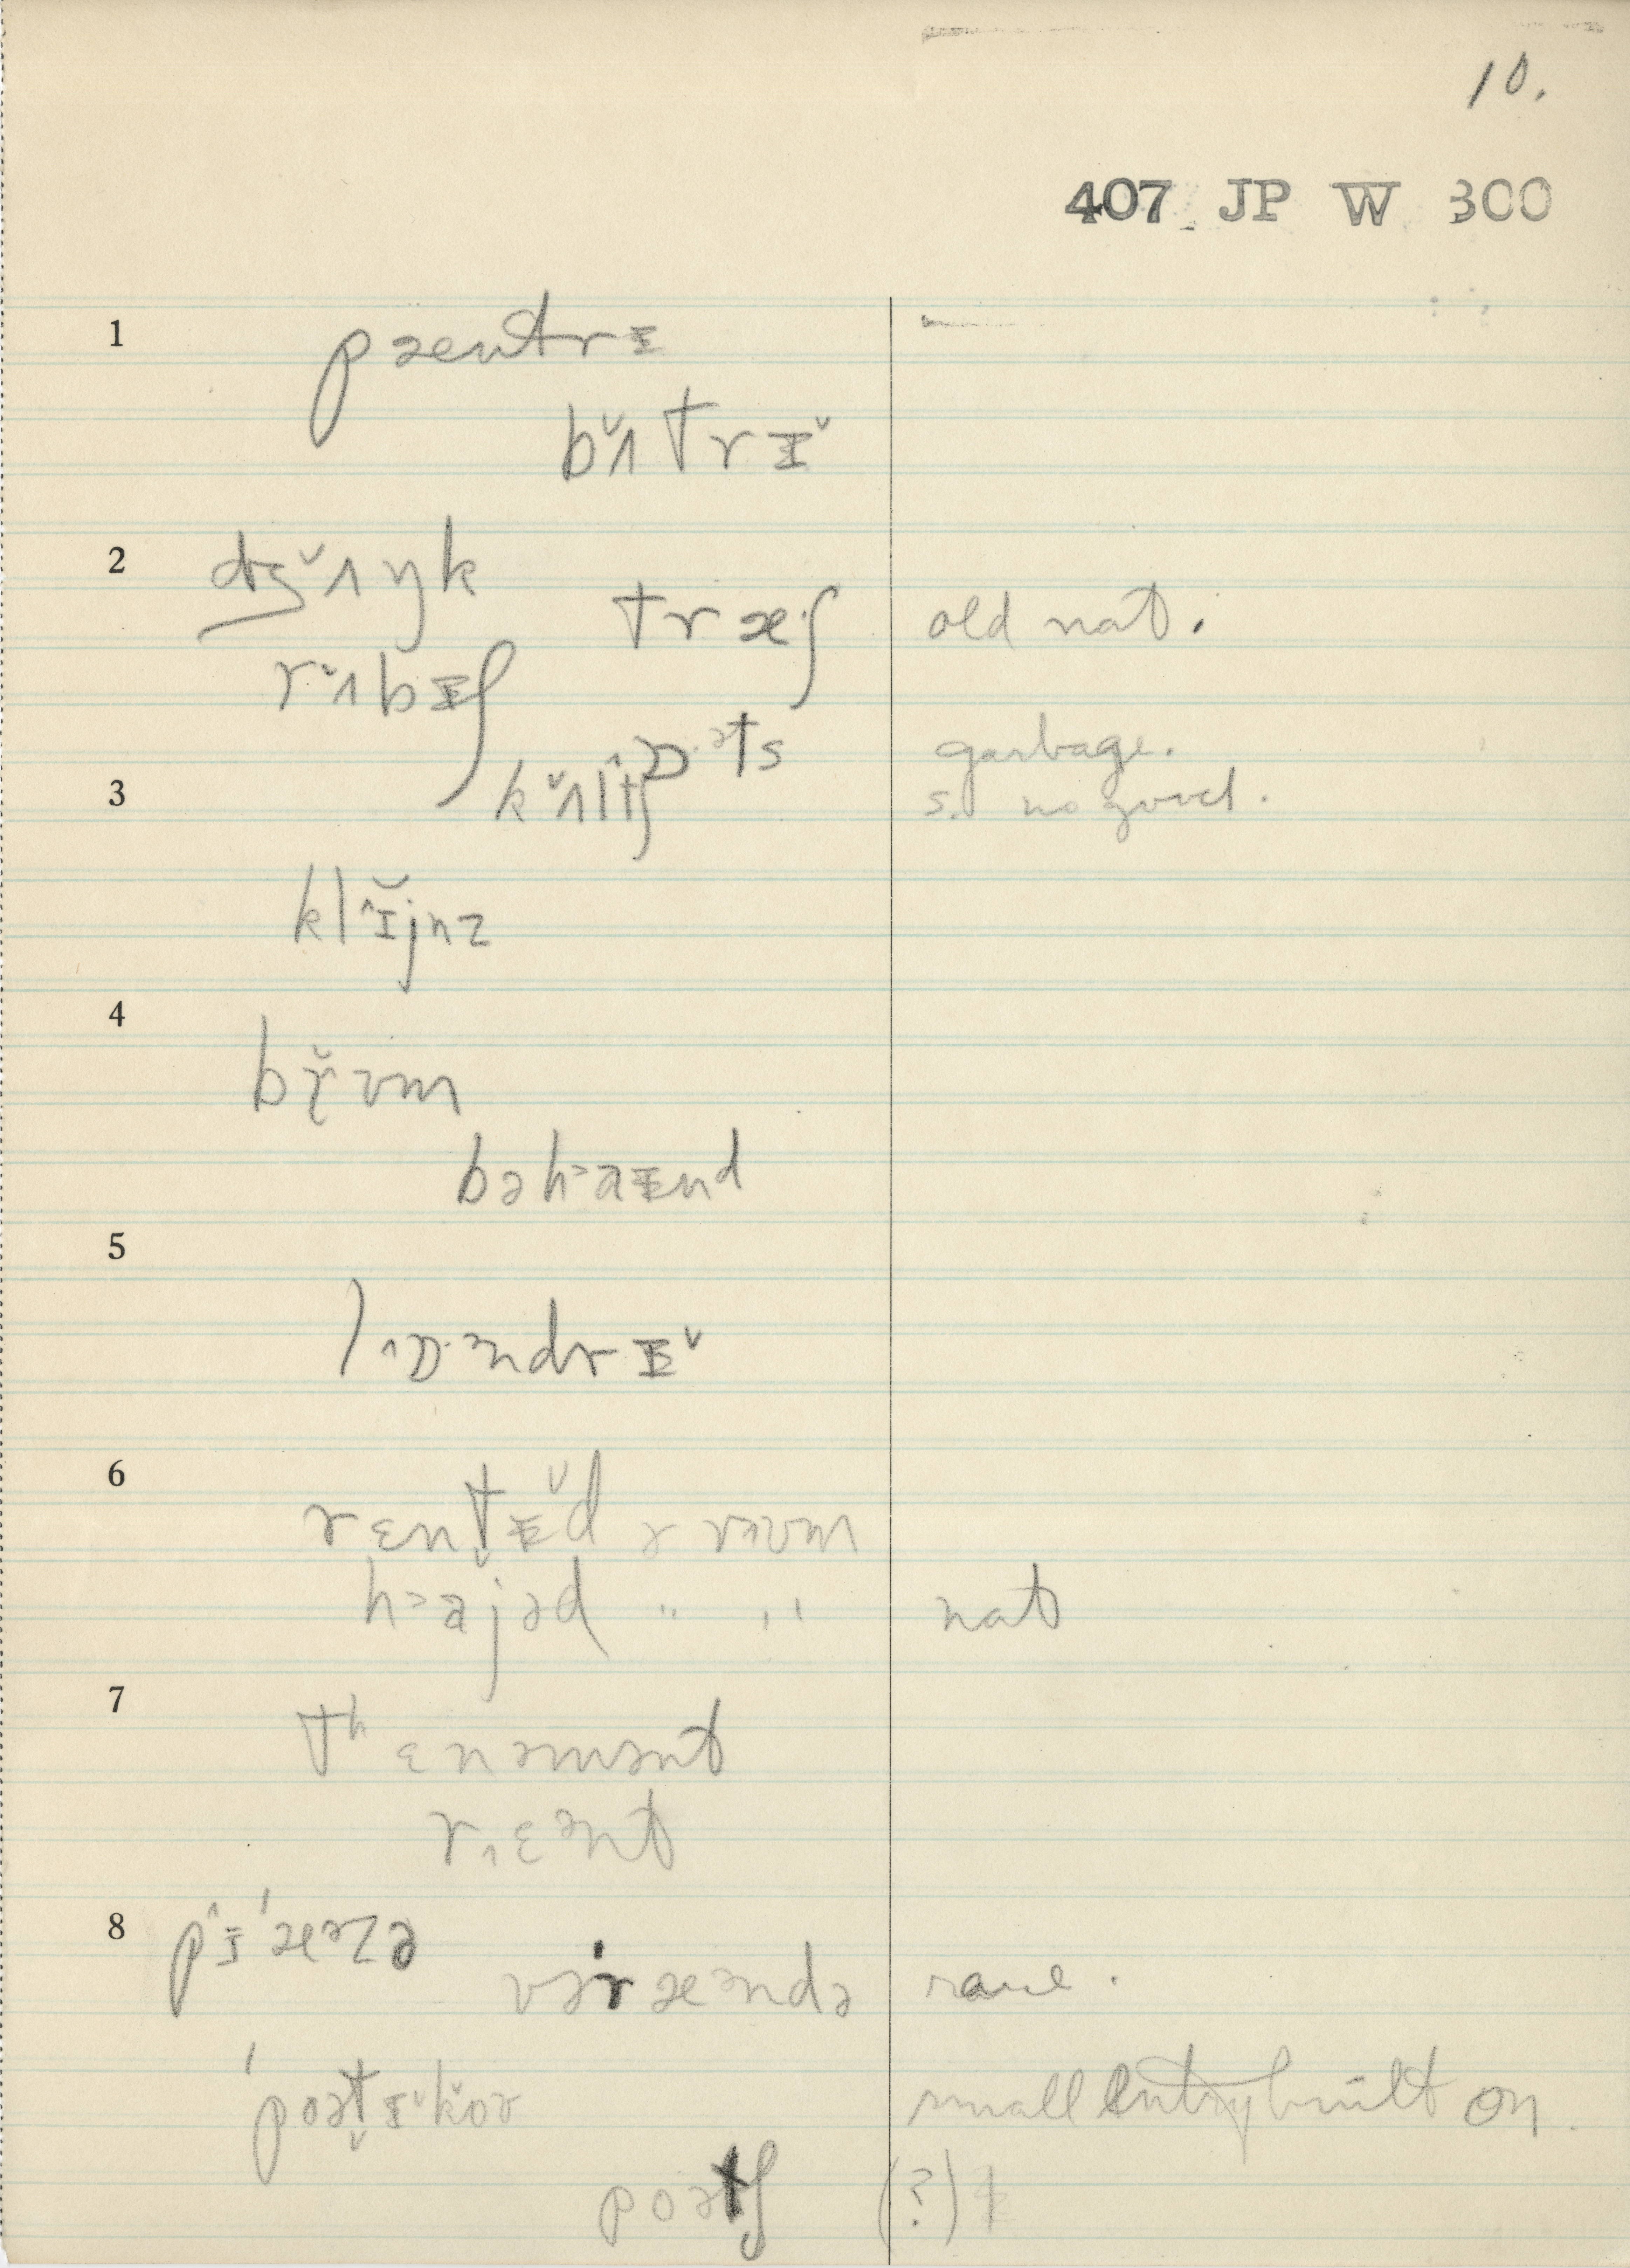 10.
407 JP W 300
1 pæntrɪ
bʌ̌trɪ̌
2 dʒʌ̌ŋk
træʃ old nat.
rʌbɪʃ
ɒəts garbage.
3 kʌltʃ s. no good.
klɪ̌jnz
4 br̬ʊm
bəhaɪnd
5 lɒəndrɪ̌
6 rɛnt̬ɪd ə rʊm
hajəd " " nat
7 tʰɛnəmənt
rɛənt
8 pɪˈæəzə
vəˈræəndə rare.
ˈpoət̬ɪkoʊ small entry built on.
poətʃ (?)